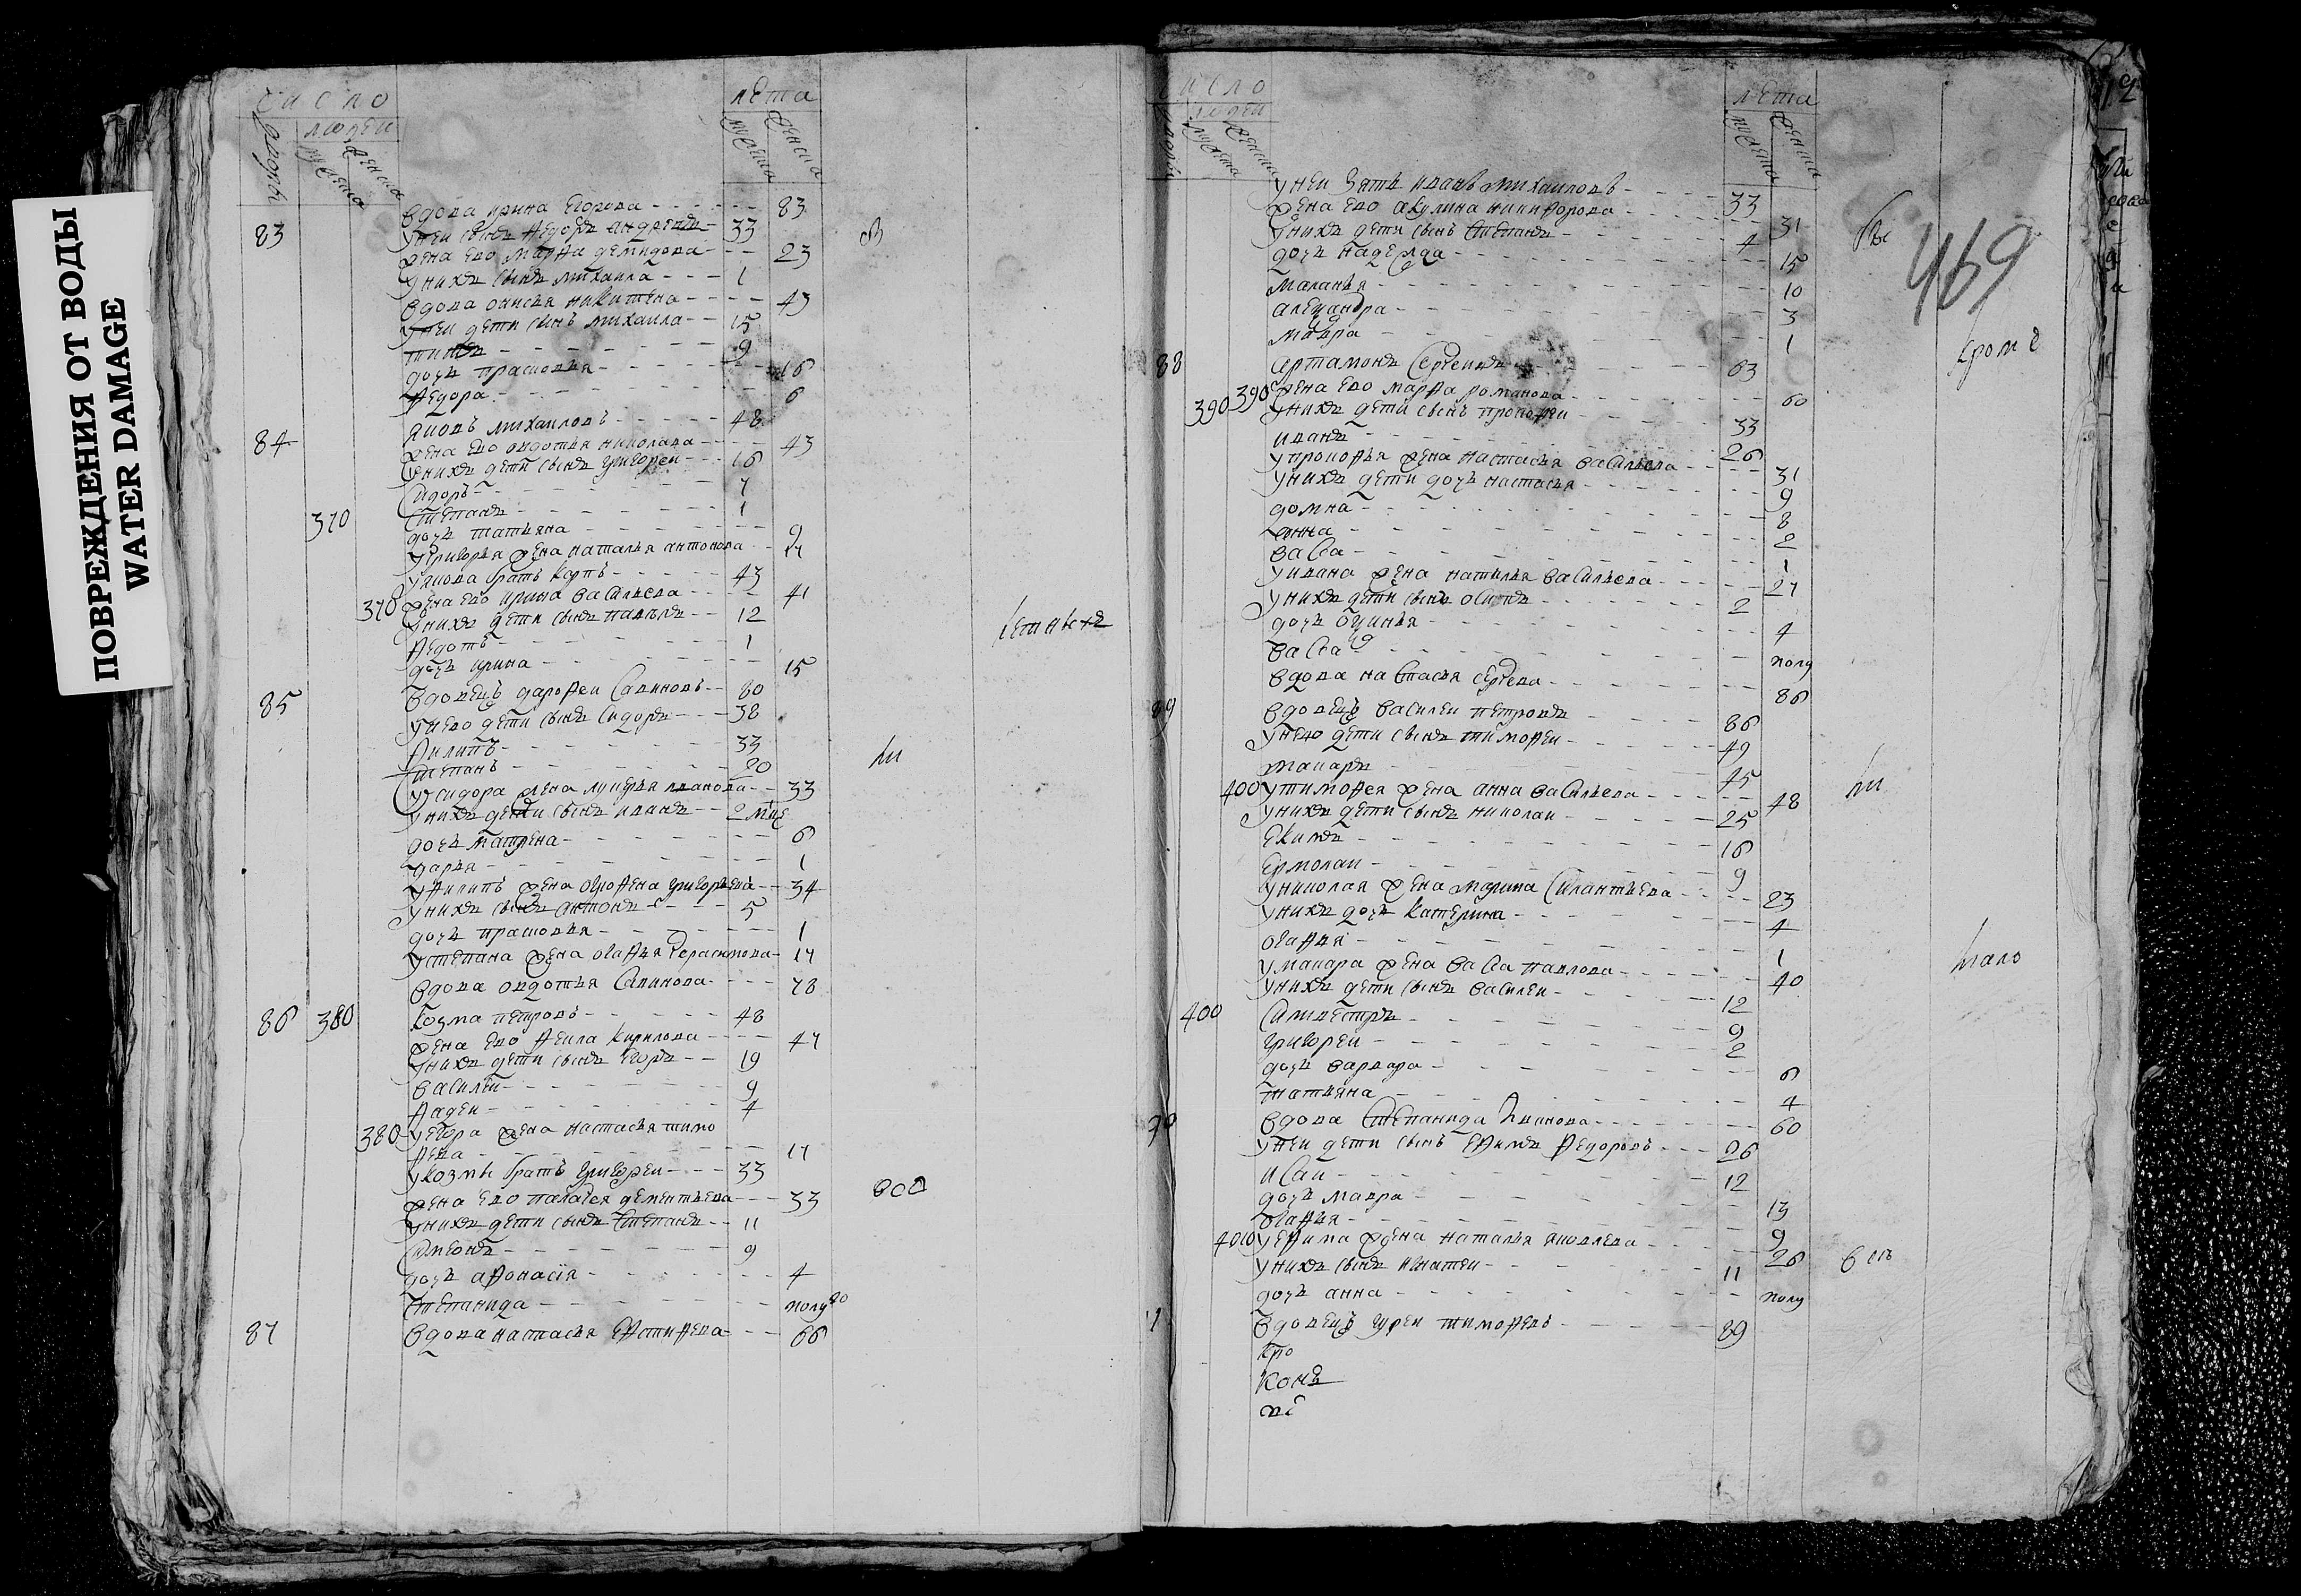 ПОВРЕЖДЕНИЯ ОТ ВОДЫ
WATER DAMAGE
число лѣта
дворовъ людей мужеска женска мужеска женска
вдова ирина егорова 83
83 у неи сынъ ѳедоръ андреевъ 33
жена ево марѳа демидова 23
у нихъ сынъ михаила 1
вдова онисья никитина 43
у неи дети сынъ михаила 15
9
дочь прасковья 16
ѳедора 6
84 яковъ михаиловъ 48
жена ево овдотья николаева 43
у нихъ дети сынъ григореи 16
сидоръ 7
370 степанъ 1
дочь татьяна 9
у григорья жена наталья антонова 17
у якова братъ карпъ 43
370 жена ево ирина васильева 41
у нихъ дети сынъ павелъ 12
ѳедотъ 1
дочь ирина 15
85 вдовецъ дароѳеи савиновъ 80
у нево дети сынъ сидоръ 38
ѳилипъ 33
степанъ 20
у сидора жена лукерья иванова 33
у нихъ дети сынъ иванъ 2 мце
дочь матрена 6
дарья 1
у ѳилипъ жена огроѳена григорьева 34
у нихъ сынъ антонъ 5
дочь прасковья 1
у степана жена огаѳья герасимова 17
вдова овдотья савинова 78
86 380 козма петровъ 48
жена ево ѳекла кирилова 47
у нихъ дети сынъ егоръ 19
василеи 9
ѳадеи 4
380 у егора жена настасья тимо
ѳева 17
у козмы братъ григореи 33
жена ево палагея дементьева 33
у нихъ дети сынъ степанъ 11
симеонъ 9
дочь аѳонасія 4
степанида полуго
87 вдова настасья естиѳева 66
число лѣта
людей мужеска женска мужеска женска
469
у неи зять иванъ михаиловъ 33
жена ево акулина никиѳорова 31
у нихъ дети сынъ степанъ 4
дочь надежда 15
маланья 10
александра 3
мавра 1
кроме
88 артамонъ сергеивъ 63
390 жена ево марѳа романова 60
390 у нихъ дети сынъ прокоѳеи 33
иванъ 26
у прокоѳья жена настасья васильева 31
у нихъ дети дочь настасья 9
домна 8
анна 2
васса 1
у ивана жена наталья васильева 27
у нихъ дети сынъ осипъ 2
дочь 4
васса полу
вдова настасья сергева 86
89 вдовецъ василеи петровъ 86
у нево дети сынъ тимоѳеи 49
макаръ 45
400 у тимоѳея жена анна васильева 48
у нихъ дети сынъ николаи 25
екимъ 16
ермолаи 9
у николая жена марина силантьева 23
у нихъ дочь катерина 4
огаѳья 1
у макара жена васса павлова 40
у нихъ дети сынъ василеи 12
400 силвестръ 9
григореи 2
дочь варвара 6
татьяна 4
90 вдова степанида иванова 60
у неи дети сынъ еѳимъ ѳедоровъ 26
исаи 12
дочь мавра 13
огаѳья 9
у еѳима жена наталья яковлева 26
у нихъ сынъ игнатеи 11
дочь анна полу
вдовецъ гуреи тимоѳевъ 89